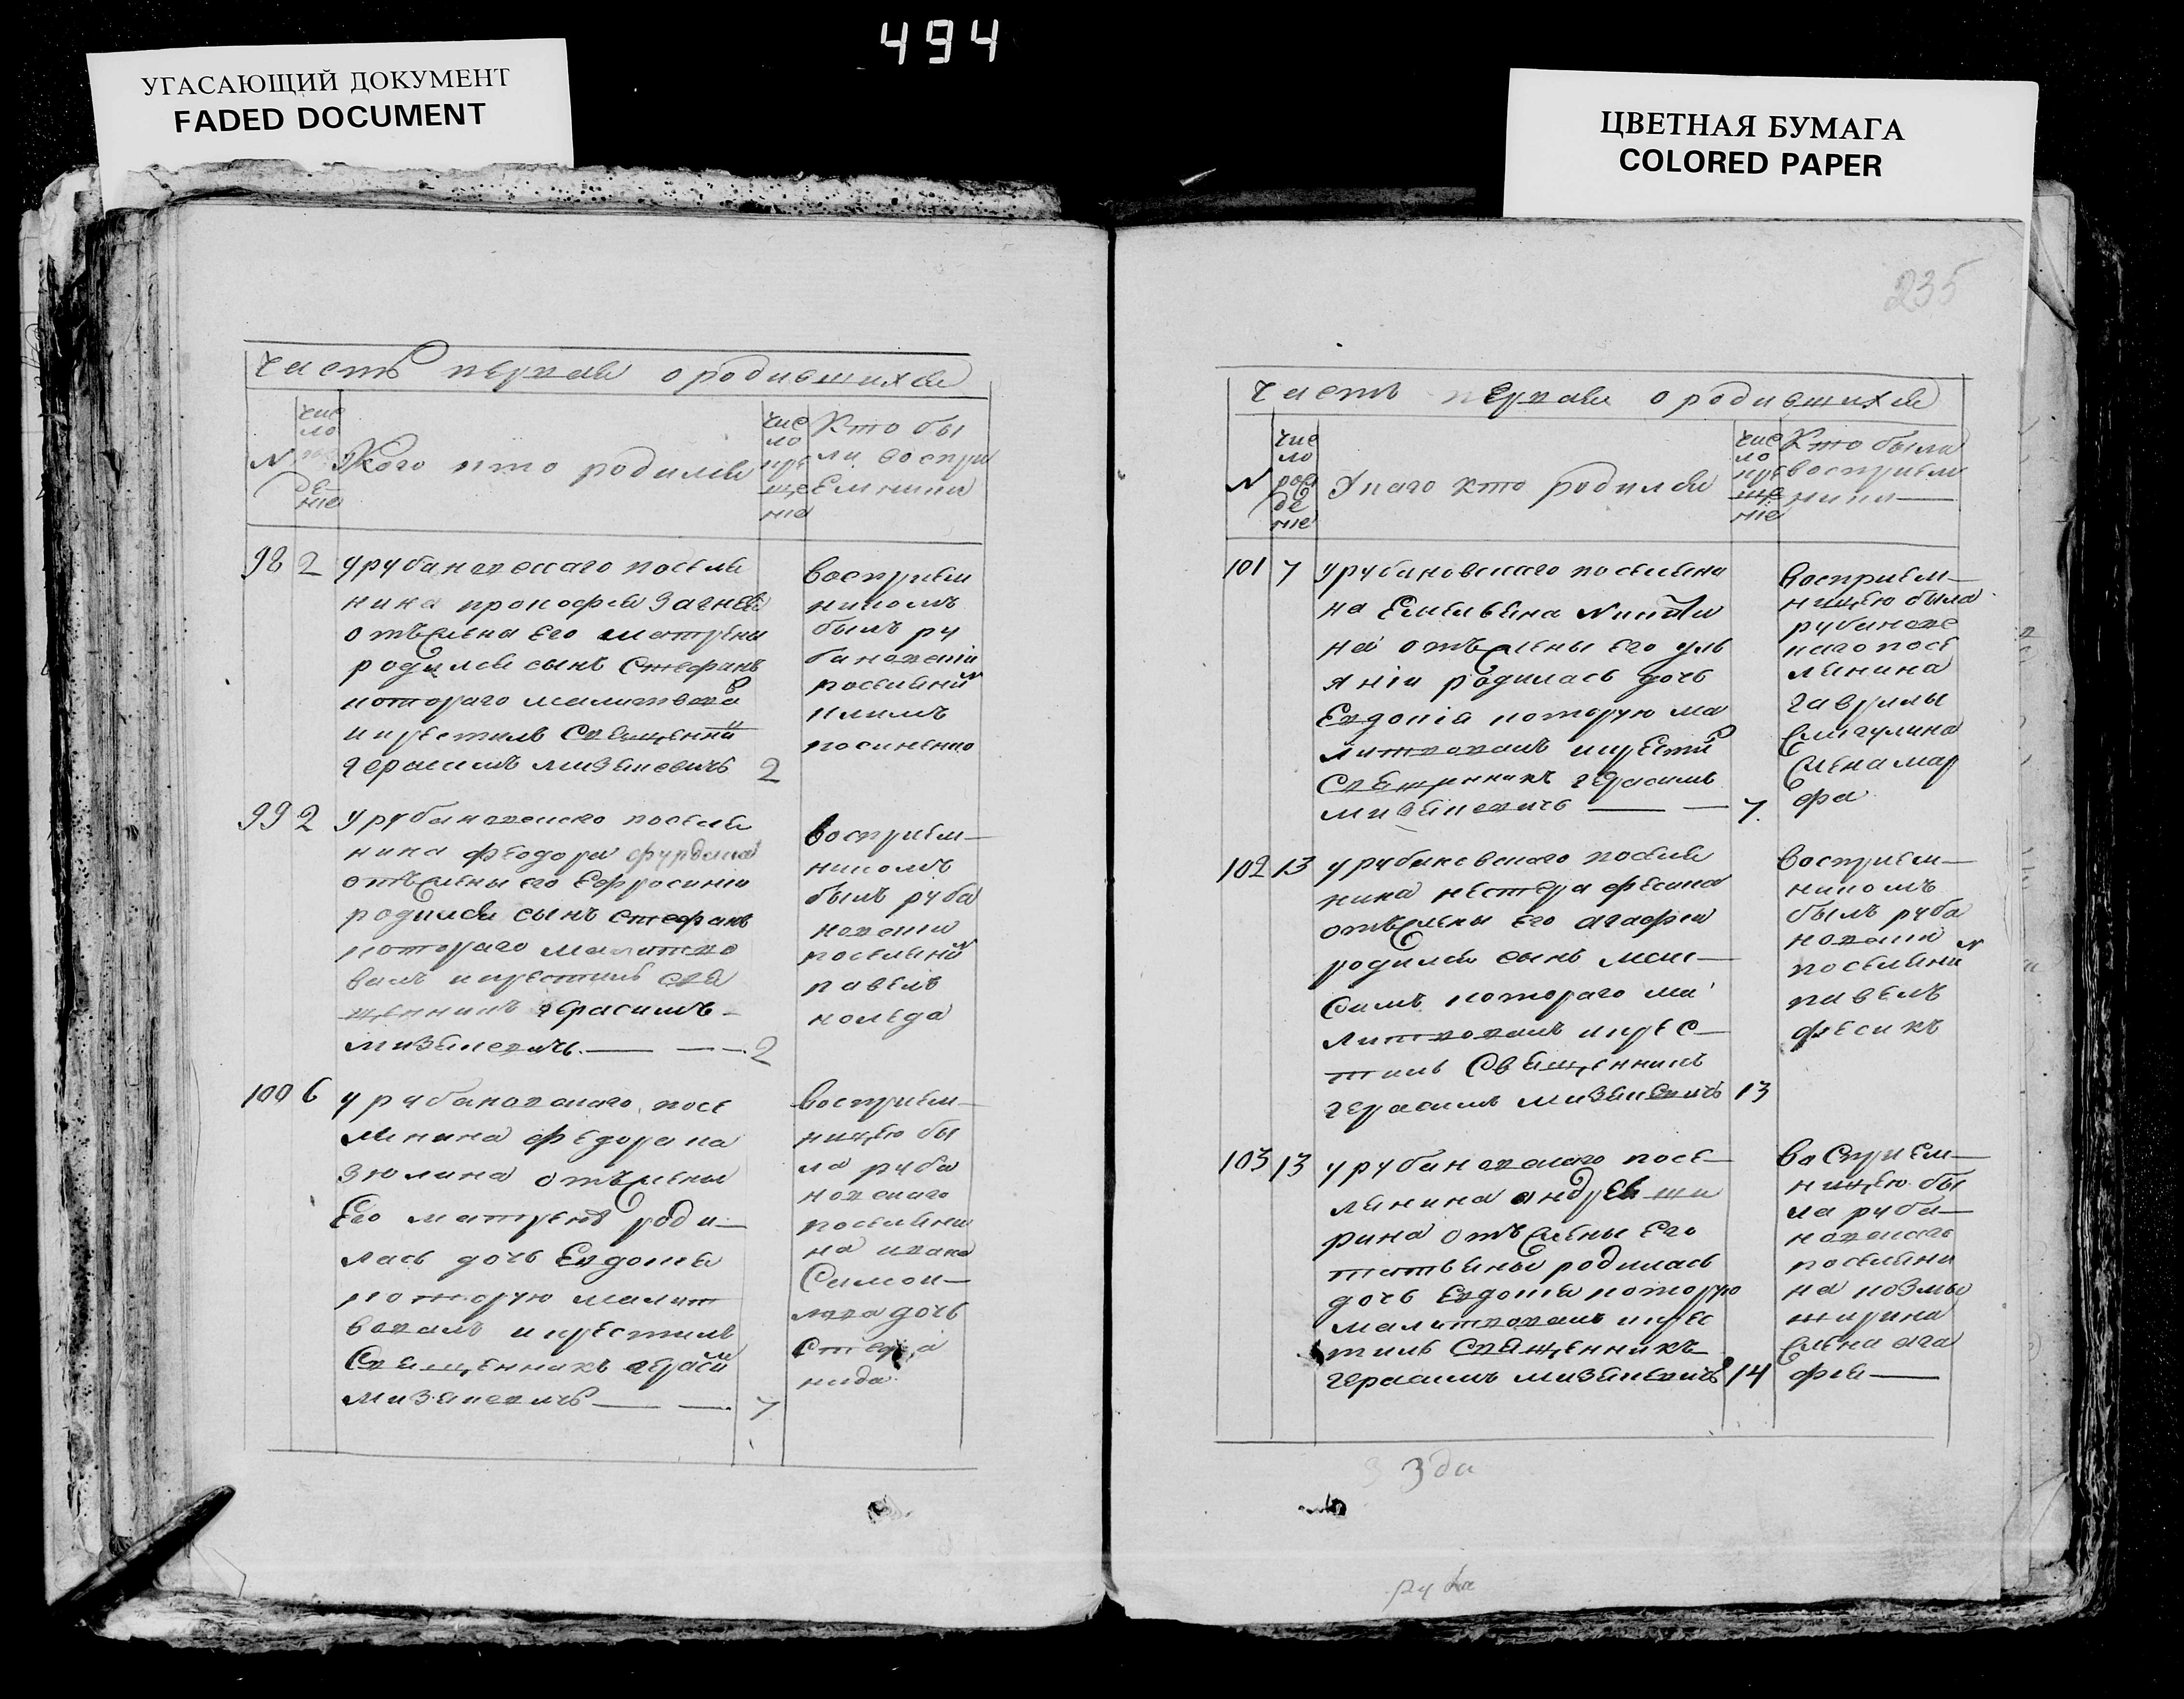 494
УГАСАЮЩИЙ ДОКУМЕНТ
FADED DOCUMENT
ЦВЕТНАЯ БУМАГА
COLORED PAPER
235
Часть первая о родившихся
N
чис
ло
де
ніе
У кого кто родился
чис
ло
кре
ще
ніе
Кто бы
ли воспри
емники
98 2
у рубановскаго поселя
нина прокофея
отъ жены его матрены
родился сынъ стефанъ
котораго малитвова
и крестилъ Священни
герасимъ мизакевичъ 2
восприем
никомъ
былъ ру
бановскій
поселянин
климъ
99 2
у рубановскаго поселя
нина феодора
отъ жены его Ефросинии
родился сынъ стефанъ
котораго малитво
валъ и крестилъ свя
щенникъ герасимъ
мизакевичъ 2
восприем
никомъ
былъ руба
новски
поселянин
павелъ
коляда
100 6
у рубановскаго посе
лянина федора ка
зюлина отъ жены
Его матрены роди
лась дочь Евдокія
которую малит
вовалъ и крестилъ
Священникъ герасим
мизакевичъ 7
восприем
ницею бы
ла руба
новскаго
поселяни
на ивана
дочь
Степа
нида
Часть первая о родившихся
N
чис
ло
рож
де
ніе
У каго кто родился
чис
ло
кре
ще
ніе
Кто были
восприем
ники
101 7
у рубановскаго поселяни
на Емельяна
на отъ жены его уль
яніи родилась дочь
Евдокія которую ма
литвовалъ и крести
Священникъ герасимъ
мизакевичъ 7
восприем
ницею была
рубановс
каго посе
лянина
гаврилы
жена мар
фа
102 13
у рубановскаго поселя
нина нестера фесика
отъ жены Его агафии
родился сынъ мак
симъ котораго ма
литвовалъ и крес
тилъ Священникъ
герасимъ мизакевичъ 13
восприем
никомъ
былъ руба
новски
поселянин
павелъ
фесикъ
103 13
у рубановскаго посе
лянина андрея жи
рина отъ жены Его
татьяны родилась
дочь Евдокія которую
малитвовалъ и крес
тилъ Священникъ
герасимъ мизакевичъ 14
восприем
ницею бы
ла руба
новскаго
поселяни
на козмы
жирина
жена ага
фія